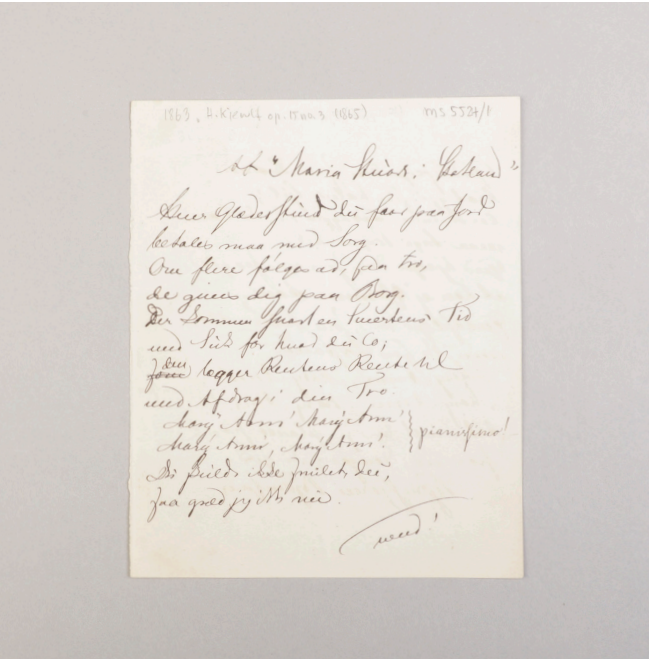 1863, R. Kirault op. 15 no. 3 (1865) ms 5527/1
Af "Maria Stuart i Skotland"
Hver Glædesstund du faar paa Jord
betales maa med Sorg.
Om flere følges ad, saa tro,
de gives dig paa Borg.
Der kommer snart en Smertens Tid
med Suk for hvad du lo;
den lægger Rentens Rente til
med Afdrag i din Tro.
Mary Ann! Mary Ann!
Mary Ann, Mary Ann!
pianissimo!
ikke smilet du,
saa græd jeg ikke nu.
vend!